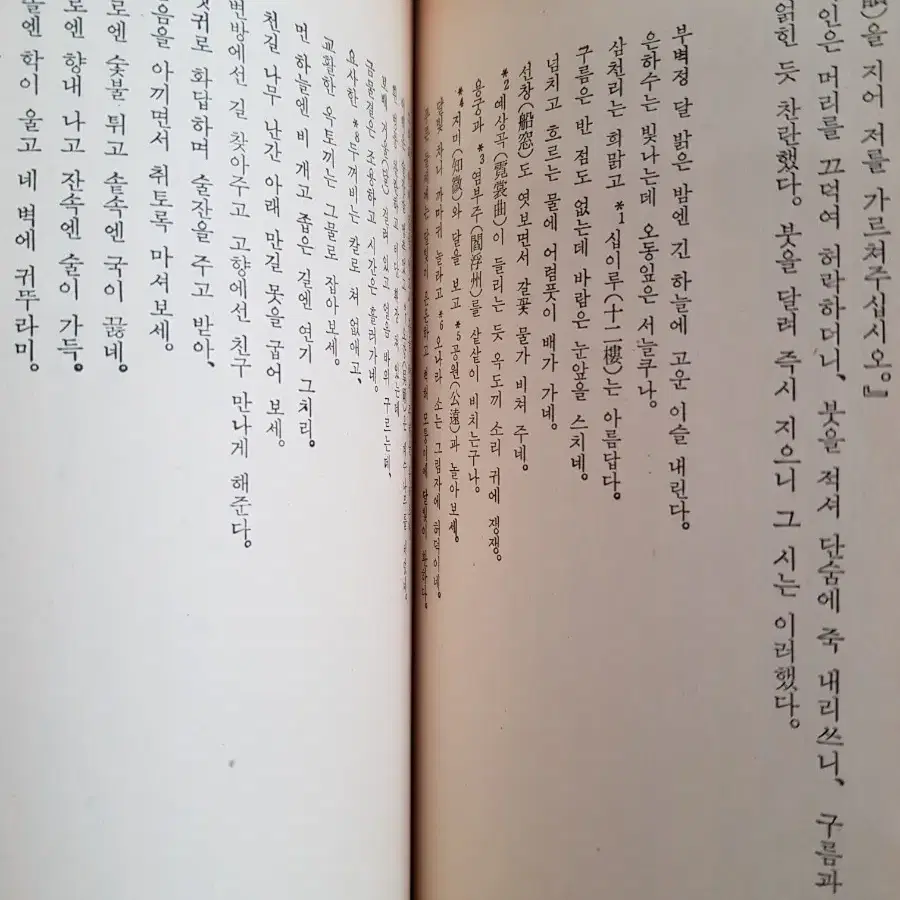 을 지어 저를 가르쳐주십시오。』
인은 머리를 끄덕여 허락하더니、 붓을 적셔 단숨에 죽 내리쓰니、 구름과
얽힌 듯 찬란했다。 붓을 달려 즉시 지으니 그 시는 이러했다。
부벽정 달 밝은 밤엔 긴 하늘에 고운 이슬 내린다。
은하수는 빛나는데 오동잎은 서늘쿠나。
삼천리는 희맑고 *1 십이루(十二樓)는 아름답다。
구름은 반 점도 없는데 바람은 눈앞을 스치네。
넘치고 흐르는 물에 어렴풋이 배가 가네。
선창(船窓)도 엿보면서 갈꽃 물가 비쳐 주네。
*2 예상곡(霓裳曲)이 들리는 듯 옥도끼 소리 귀에 쟁쟁。
용궁과 *3 염부주(閻浮州)를 샅샅이 비치는구나。
*4 지미(知微)와 달을 보고 *5 공원(公遠)과 놀아보세。
달빛 차니 까마귀 놀라고 *6 오나라 소는 그림자에 허덕이네。
달빛이 은은하고 모퉁이에 달빛이 훤하다。
걸려 있고 얼음 바퀴 구르는데、
금물결은 조용하고 시간은 흘러가네。
요사한 *8 두꺼비는 칼로 쳐 없애고、
교활한 옥토끼는 그물로 잡아보세。
먼 하늘엔 비 개고 좁은 길엔 연기 그치리。
천길 나무 난간 아래 만길 못을 굽어 보세。
변방에선 길 찾아주고 고향에선 친구 만나게 해준다。
귀로 화답하며 술잔을 주고 받아、
음을 아끼면서 취토록 마셔보세。
로엔 숯불 튀고 솥속엔 국이 끓네。
로엔 향내 나고 잔속엔 술이 가득。
엔 학이 울고 네 벽에 귀뚜라미。